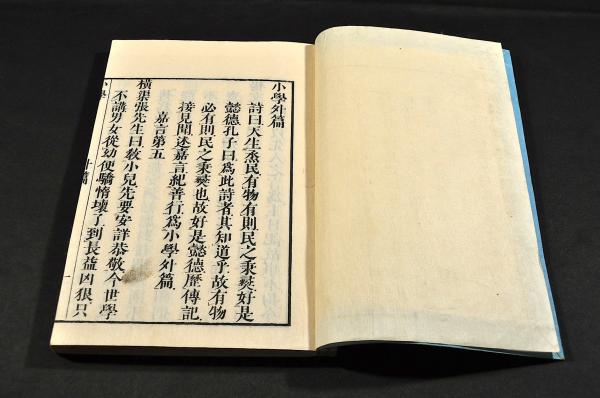 小學外篇
詩曰天生烝民有物有則民之秉彜好是
懿德孔子曰爲此詩者其知道乎故有物
必有則民之秉彜也故好是懿德歷傳記
接見聞述嘉言紀善行爲小學外篇
嘉言第五
橫渠張先生曰敎小兒先要安詳恭敬今世學
不講男女從幼便驕惰壞了到長益凶狠只
小學
外篇